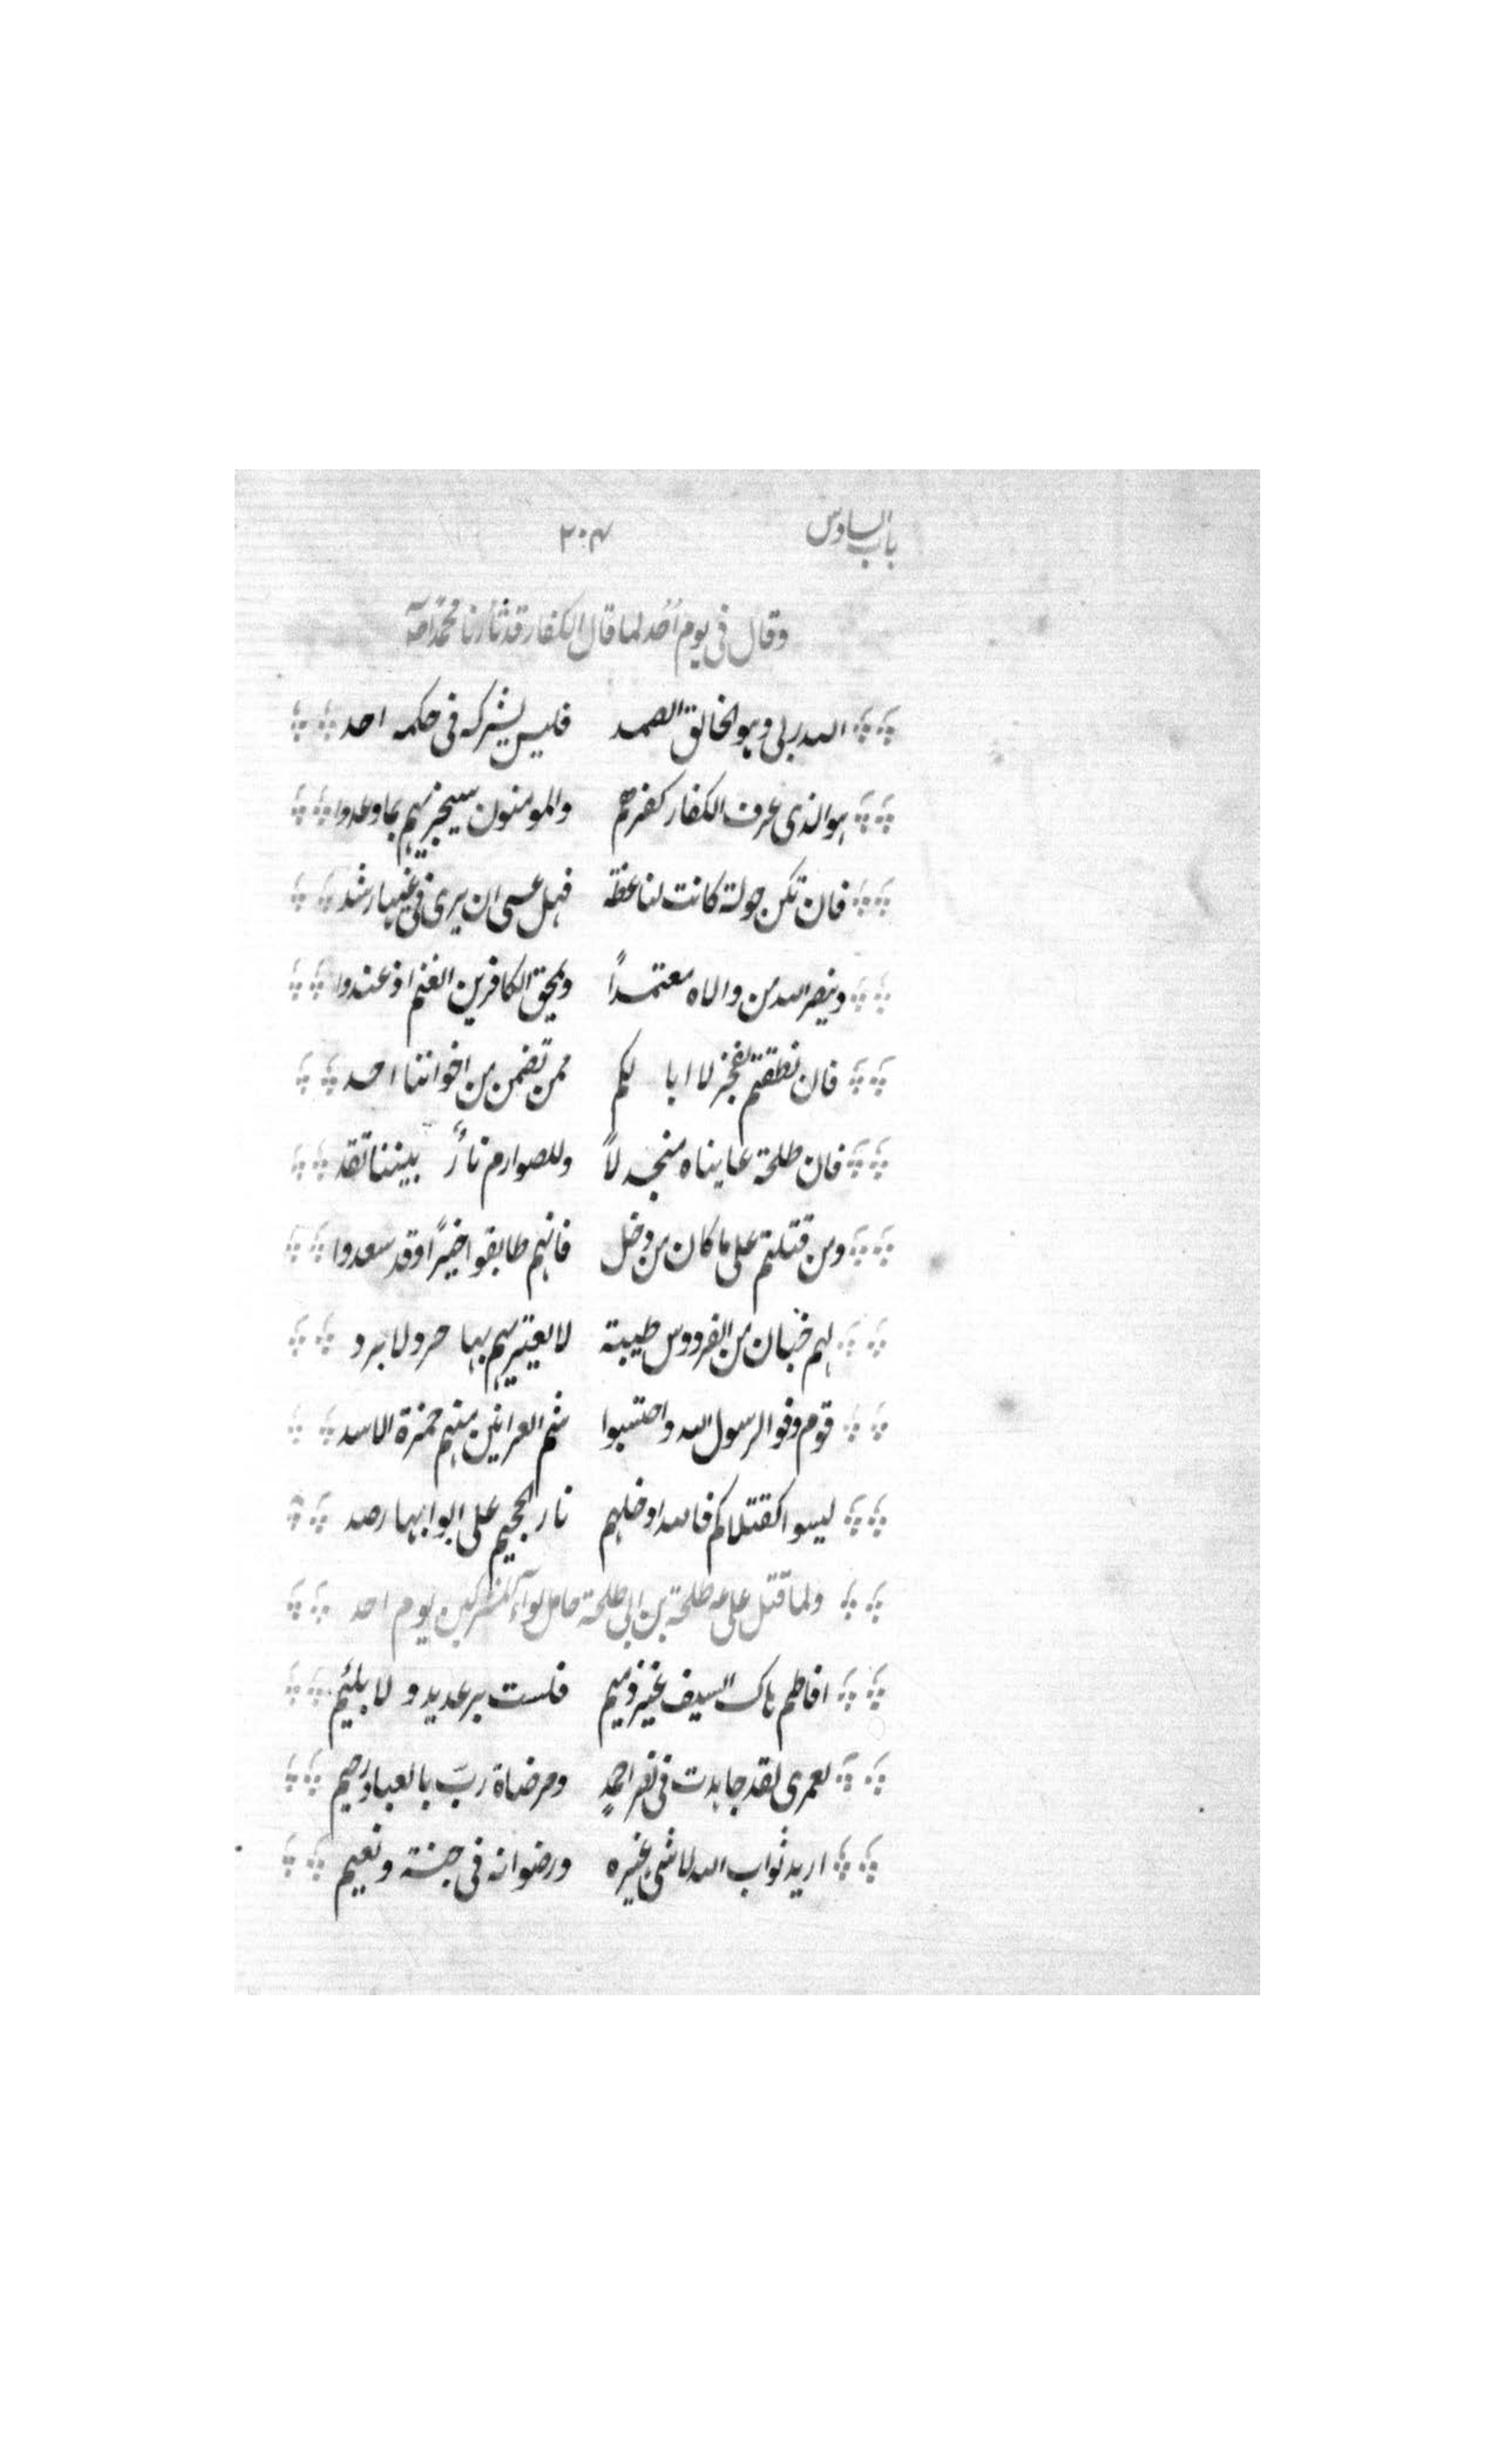 باب السادس ٢٠٤
وقال فى يوم اُحُد لما قال الكفار قد ثأرنا محمّداً صه
الله ربى وهو الخالق الصمد فليس يشركه فى حكمه احد
هو الذى عرف الكفار كفرهم والمومنون سيجزيهم بما وعدوا
فان تكن دولة كانت لنا عظة فهل عسى ان يرى فى غيها رشد
وينصر الله من والاه معتمداً ويحق الكافرين اذ عندوا
فان نطقتم بفخر لا ابا لكم ممن تضمن من اخواننا احد
فان طلحة عايناه منجدلاً وللصوارم نارٌ بيننا تقد
ومن قتلتم على ما كان من دخل فانهم طابقوا خيرًا وقد سعدوا
لهم جنان من الفردوس طيبة لا يعتريهم بها حر ولا برد
قوم وفوا لرسول الله واحتسبوا شم العرانين منهم حمزة الاسد
ليسوا كقتلاكم فالله ادخلهم نار الجحيم على ابوابها رصد
ولما قتل على عه طلحة بن ابى طلحة حامل لوآء المشركين يوم احد
افاطم هاك السيف غير ذميم فلست برعديد و لا بلئيم
لعمرى لقد جاهدت فى نصر احمدٍ ومرضاة ربّ بالعباد رحيم
اريد ثواب الله لا شى غيره ورضوانه فى جنة ونعيم